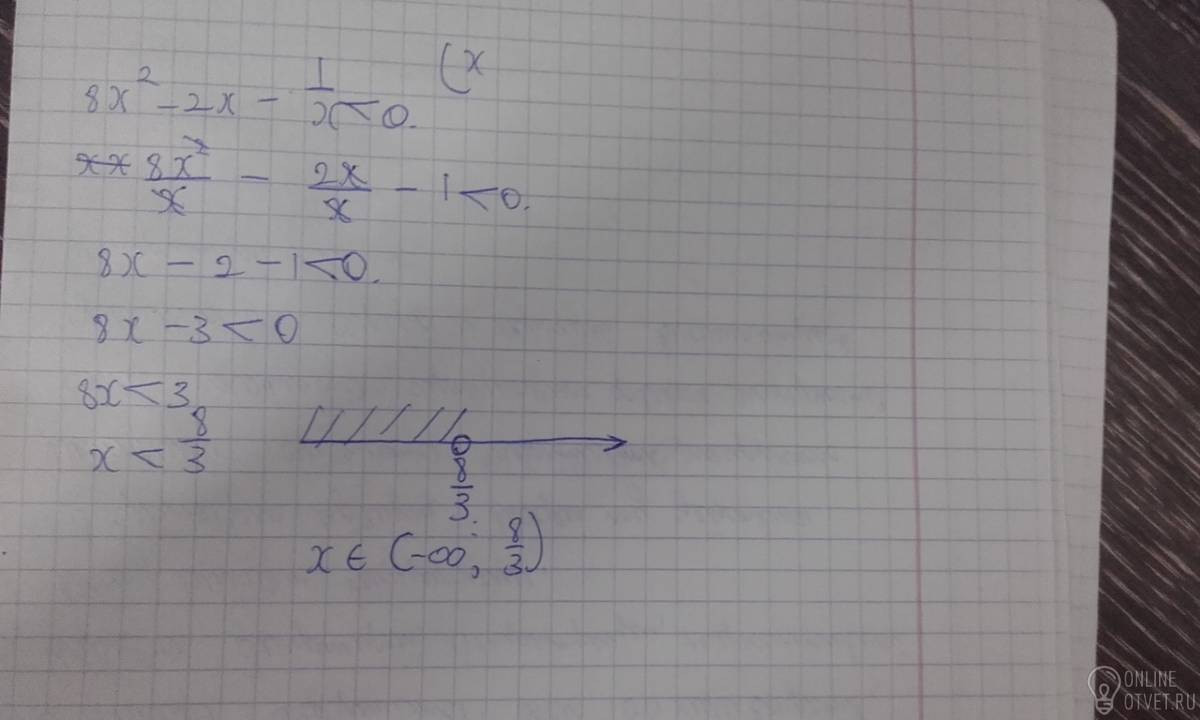 8x² - 2x - 1/x < 0. (x
8x²/x - 2x/x - 1 < 0.
8x - 2 - 1 < 0.
8x - 3 < 0
8x < 3
x < 8/3
8/3
x ∈ (-∞; 8/3)
ONLINE
OTVET.RU